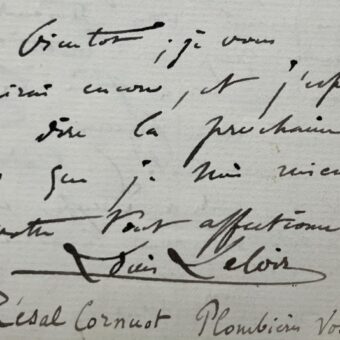 bientôt ; je vous
irai encore, et j'esp
dire la prochain
que je suis mieu
votre tout affectionn
Louis Leloir
Résal Cornuot Plombières Vo